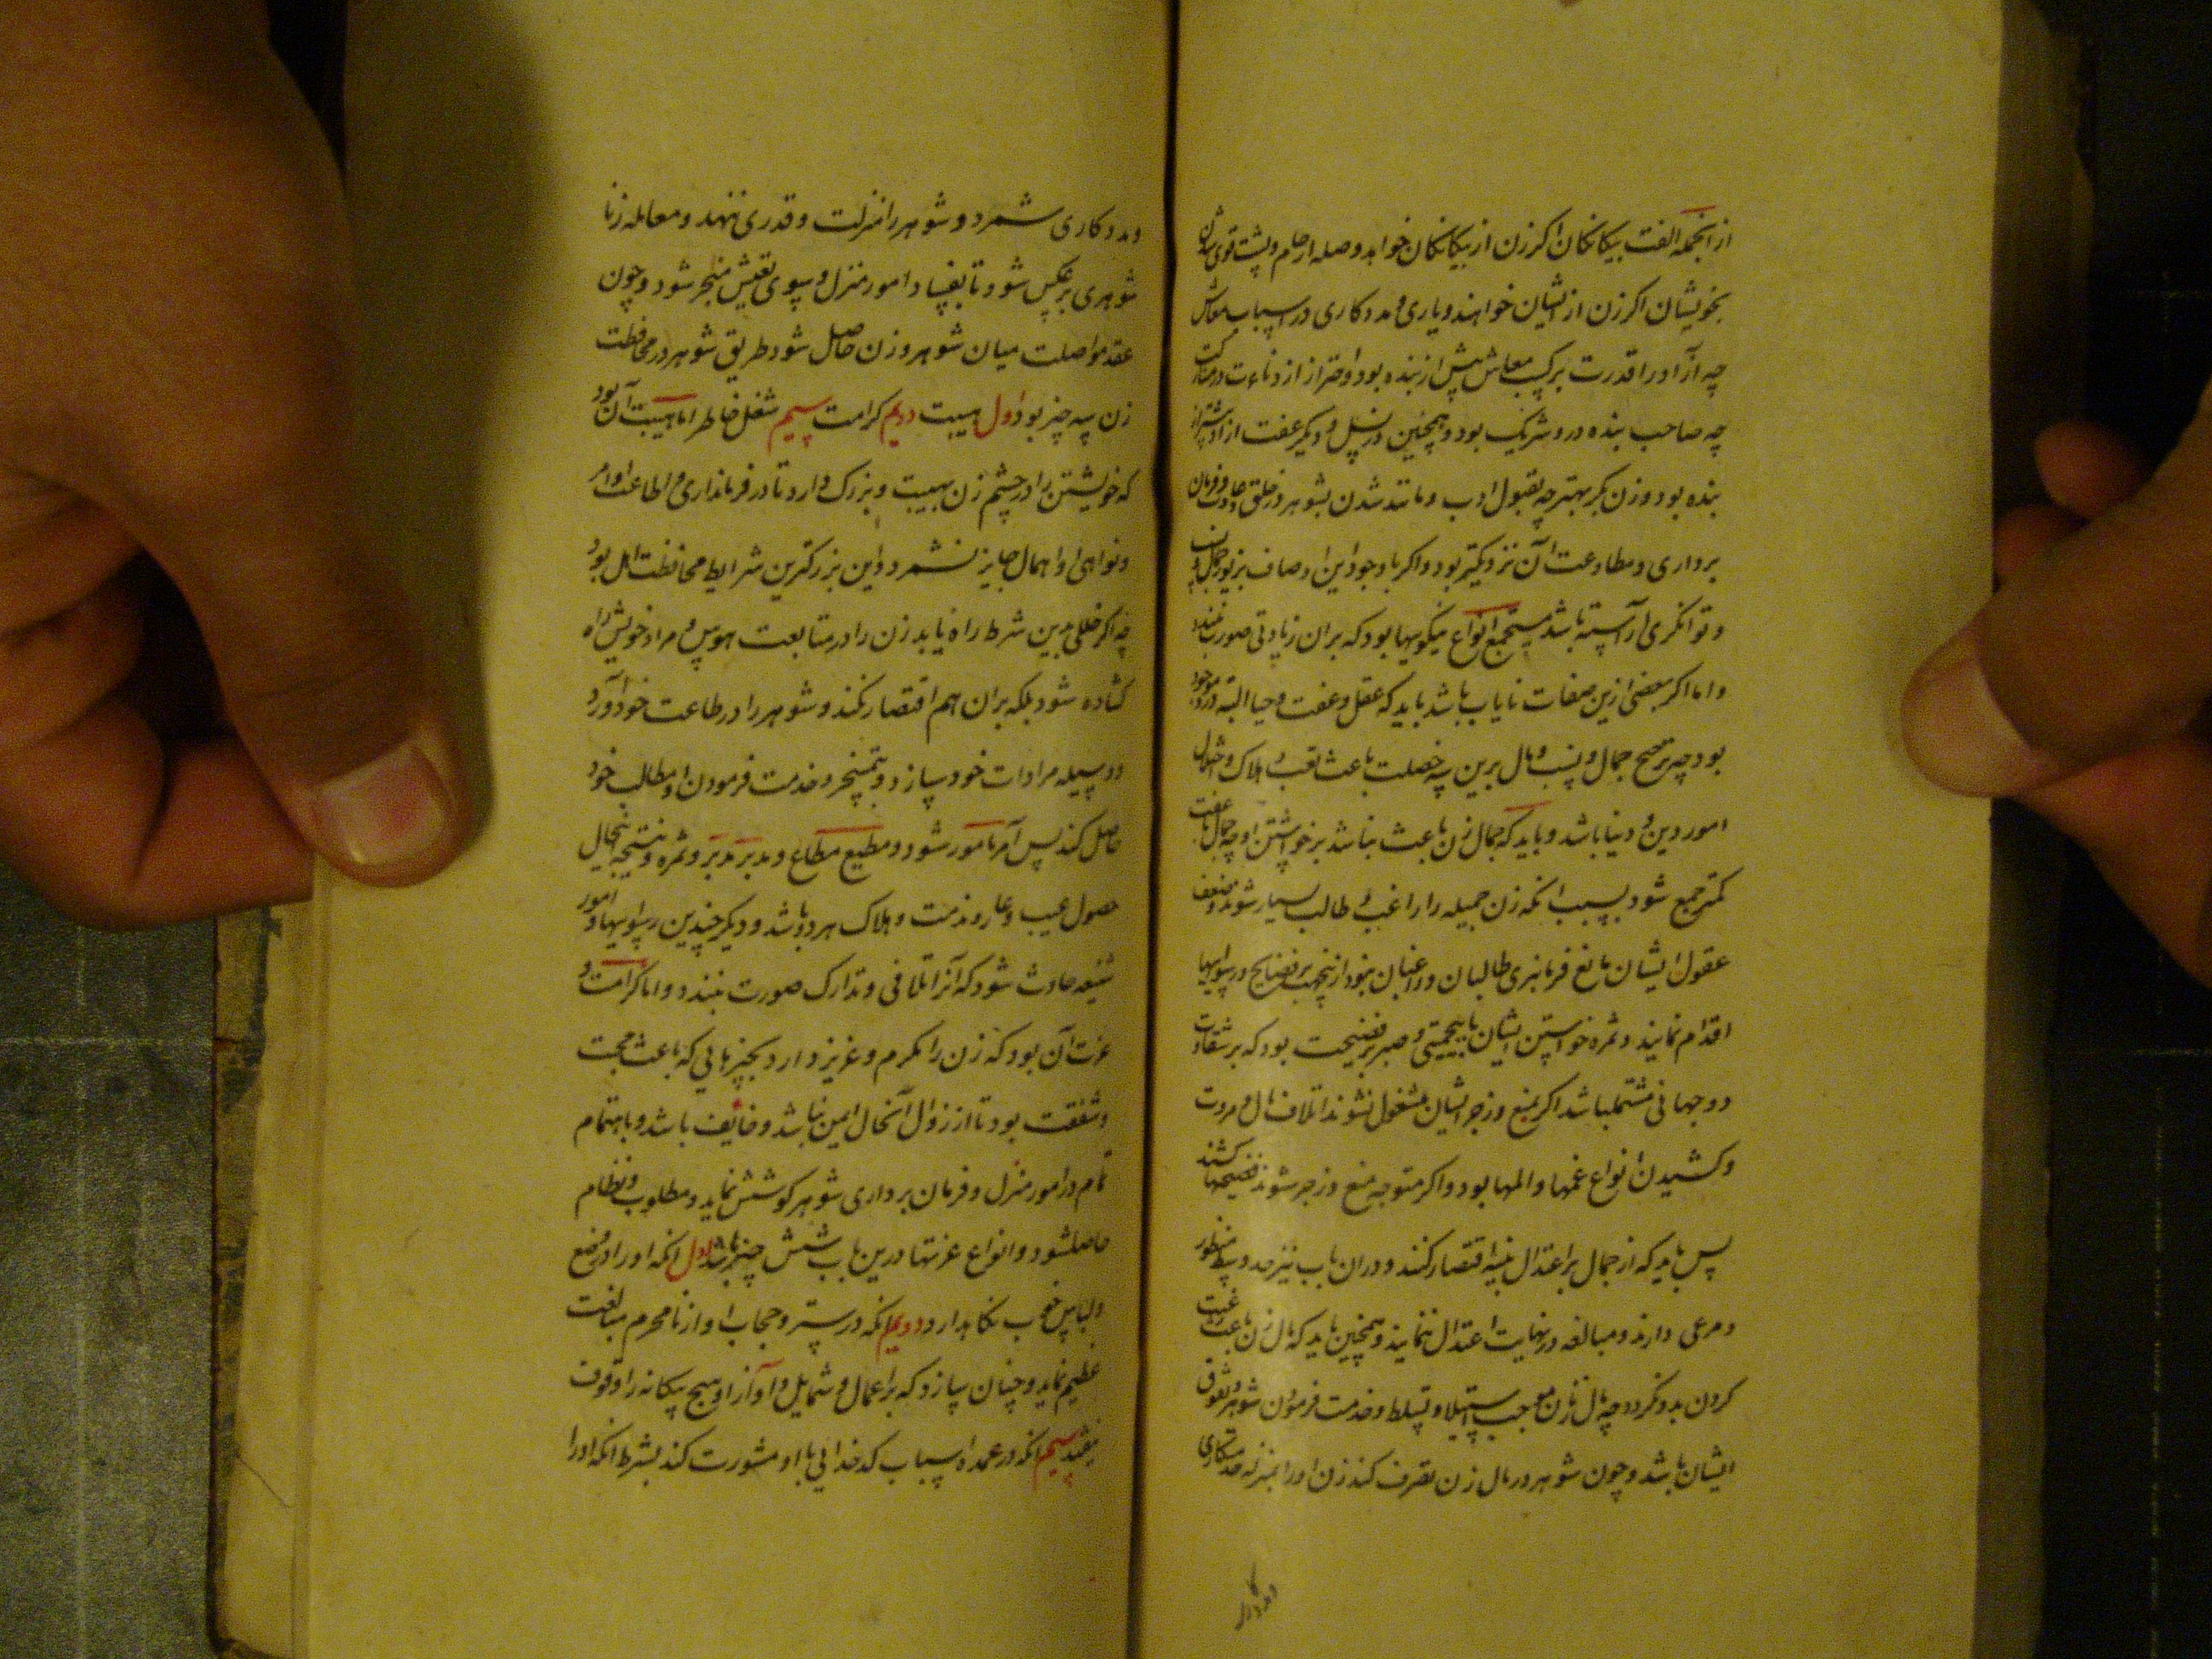 از انجمله الفت بیکانکان اکر زن از بیکانکان خواهد وصله ارحام و پشت قوی شدن
بخویشان اکر زن از ایشان خواهند ویاری و مددکاری در اسباب معاش
چه آزاد را قدرت بر کسب معاش بیش از بنده بود واحتراز از دناءت در مشارکت
چه صاحب بنده درو شریک بود وهمچنین در نسل و دیکر عفت آزاد بیشتر از
بنده بود وزن بکر بهتر چه بقبول ادب و مانند شدن بشوهر در خلق وعادت وفرمان
برداری ومطاوعت آن نزدیکتر بود واکر با وجود این اوصاف بزیور جمال ونسب
وتوانکری آراسته باشد مستجمع انواع نیکویها بود که بران زیادتی صورت نبندد
واما اکر بعضی ازین صفات نایاب باشد باید که عقل وعفت وحیا البته درو موجود
بود چه ترجیح جمال ونسب ومال برین سه خصلت باعث تعب وهلاک واختلال
امور دین و دنیا باشد وباید که جمال زن باعث نباشد بر خواستن او چه جمال با عفت
کمتر جمع شود بسبب انکه زن جمیله را راغب و طالب بسیار شوند وضعف
عقول ایشان مانع فرمانبری طالبان وراغبان نبود ازینجهت بر فضایح ورسوائیها
اقدام نمایند وثمره خواستن ایشان یا بیحمیتی وصبر بر فضیحت بود که بر شقاوت
دوجهانی مشتملباشد اکر بمنع وزجر ایشان مشغول نشوند اتلاف مال ومروت
وکشیدن انواع غمها والمها بود واکر متوجه منع وزجر شوند فضیحتها کشند
پس باید که از جمال بر اعتدال بنیه اقتصار کنند ودران باب نیز حد وسط منظور
ومرعی دارند ومبالغه در نهایت اعتدال ننمایند وهمچنین باید که مال زن باعث رغبت
کردن بدو نکردد چه مال زنان موجب استیلا وتسلط وخدمت فرمودن شوهر وتفوق
ایشان باشد وچون شوهر در مال زن تصرف کند زن او را بمنزله خدمتکاری
ومددکاری شمرد و شوهر را منزلت و قدری ننهد و معامله زنا
شوهری برعکس شود تا بفساد امور منزل و سوی تعیش منجر شود وچون
عقد مواصلت میان شوهر وزن حاصل شود طریق شوهر در محافظت
زن سه چیز بود اول هیبت دویم کرامت سیم شغل خاطر اما هیبت آن بود
که خویشتن را در چشم زن بهیبت و بزرک دارد تا در فرمانداری و اطاعت اوامر
ونواهی او اهمال جایز نشمرد واین بزرکترین شرایط محافظت اهل بود
چه اکر خللی بدین شرط راه یابد زن را در متابعت هوس و مراد خویش راه
کشاده شود بلکه بران هم اقتصار نکند و شوهر را در طاعت خود آورد
ووسیله مرادات خود سازد وبتسخیر و خدمت فرمودن او مطالب خود
حاصل کند پس آمر مامور شود و مطیع مطاع و مدبر مدبر و ثمره و نتیجه اینحال
حصول عیب و عار و مذمت و هلاک هر دو باشد و دیکر چندین رسوائیها و امور
شنیعه حادث شود که آنرا تلافی و تدارک صورت نبندد واما کرامت و
عزت آن بود که زن را مکرم و عزیز دارد بچیزهائی که باعث محبت
وشفقت بود تا از زوال آنحال ایمن نباشد و خایف باشد و باهتمام
تمام در امور منزل و فرمان برداری شوهر کوشش نماید و مطلوب و نظام
حاصلشود و انواع عزتها درین باب شش چیز باشد اول انکه او را در وضع
ولباس خوب نکاهدارد دویم انکه در ستر و حجاب او از نامحرم مبالغت
عظیم نماید و چنان سازد که بر اعمال و شمایل و آواز او هیچ بیکانه را وقوف
نیفتد سیم انکه در عمده اسباب کدخدائی با او مشورت کند بشرط انکه او را